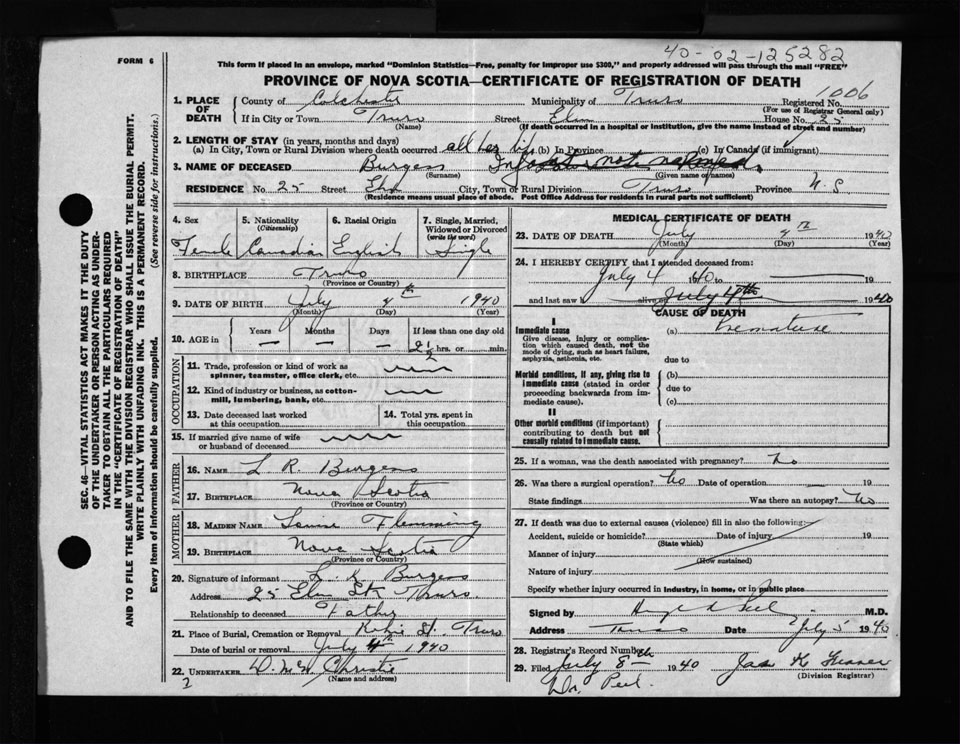 40-02-125282
FORM 6
This form if placed in an envelope, marked "Dominion Statistics—Free, penalty for improper use $300," and properly addressed will pass through the mail "FREE"
PROVINCE OF NOVA SCOTIA—CERTIFICATE OF REGISTRATION OF DEATH
1. PLACE OF DEATH County of Colchester Municipality of Truro Registered No. 1006
(For use of Registrar General only)
If in City or Town Truro Street Elm House No. 25
(Name) (If death occurred in a hospital or institution, give the name instead of street and number)
2. LENGTH OF STAY (in years, months and days)
(a) In City, Town or Rural Division where death occurred all her life (b) In Province (c) In Canada (if immigrant)
3. NAME OF DECEASED Burgess Infant not named.
(Surname) (Given name or names)
RESIDENCE No. 25 Street Elm City, Town or Rural Division Truro Province N.S
(Residence means usual place of abode. Post Office Address for residents in rural parts not sufficient)
4. Sex 5. Nationality (Citizenship) 6. Racial Origin 7. Single, Married, Widowed or Divorced (write the word)
Female Canadian English Single
8. BIRTHPLACE Truro
(Province or Country)
9. DATE OF BIRTH July 4th 1940
(Month) (Day) (Year)
10. AGE in Years Months Days If less than one day old
— — — 2½ hrs. or min.
OCCUPATION
11. Trade, profession or kind of work as spinner, teamster, office clerk, etc.
12. Kind of industry or business, as cotton-mill, lumbering, bank, etc.
13. Date deceased last worked at this occupation
14. Total yrs. spent in this occupation
15. If married give name of wife or husband of deceased
FATHER
16. NAME L. R. Burgess
17. BIRTHPLACE Nova Scotia
(Province or Country)
MOTHER
18. MAIDEN NAME Flemming
19. BIRTHPLACE Nova Scotia
(Province or Country)
20. Signature of informant L. R. Burgess
Address 25 Elm St Truro
Relationship to deceased Father
21. Place of Burial, Cremation or Removal St. Truro
Date of burial or removal July 4th 1940
22. UNDERTAKER Christie
(Name and address)
2
MEDICAL CERTIFICATE OF DEATH
23. DATE OF DEATH July 4th 1940
(Month) (Day) (Year)
24. I HEREBY CERTIFY that I attended deceased from:
July 4 40 to 19
and last saw alive July 4th 1940
CAUSE OF DEATH
I
Immediate cause (a) Premature
Give disease, injury or complication which caused death, not the mode of dying, such as heart failure, asphyxia, asthenia, etc.
due to
Morbid conditions, if any, giving rise to immediate cause (stated in order proceeding backwards from immediate cause).
(b)
due to
(c)
II
Other morbid conditions (if important) contributing to death but not causally related to immediate cause.
25. If a woman, was the death associated with pregnancy? no
26. Was there a surgical operation? No Date of operation — 19
State findings Was there an autopsy? No
27. If death was due to external causes (violence) fill in also the following:—
Accident, suicide or homicide? Date of injury 19
(State which)
Manner of injury
(How sustained)
Nature of injury
Specify whether injury occurred in industry, in home, or in public place
Signed by M.D.
Address Truro Date July 5 1940
28. Registrar's Record Number
29. Filed July 8th 1940 Jas
(Division Registrar)
Dr. Peel.
SEC. 46—VITAL STATISTICS ACT MAKES IT THE DUTY
OF THE UNDERTAKER OR PERSON ACTING AS UNDER-
TAKER TO OBTAIN ALL THE PARTICULARS REQUIRED
IN THE "CERTIFICATE OF REGISTRATION OF DEATH"
AND TO FILE THE SAME WITH THE DIVISION REGISTRAR WHO SHALL ISSUE THE BURIAL PERMIT.
WRITE PLAINLY WITH UNFADING INK. THIS IS A PERMANENT RECORD.
Every item of information should be carefully supplied. (See reverse side for instructions).